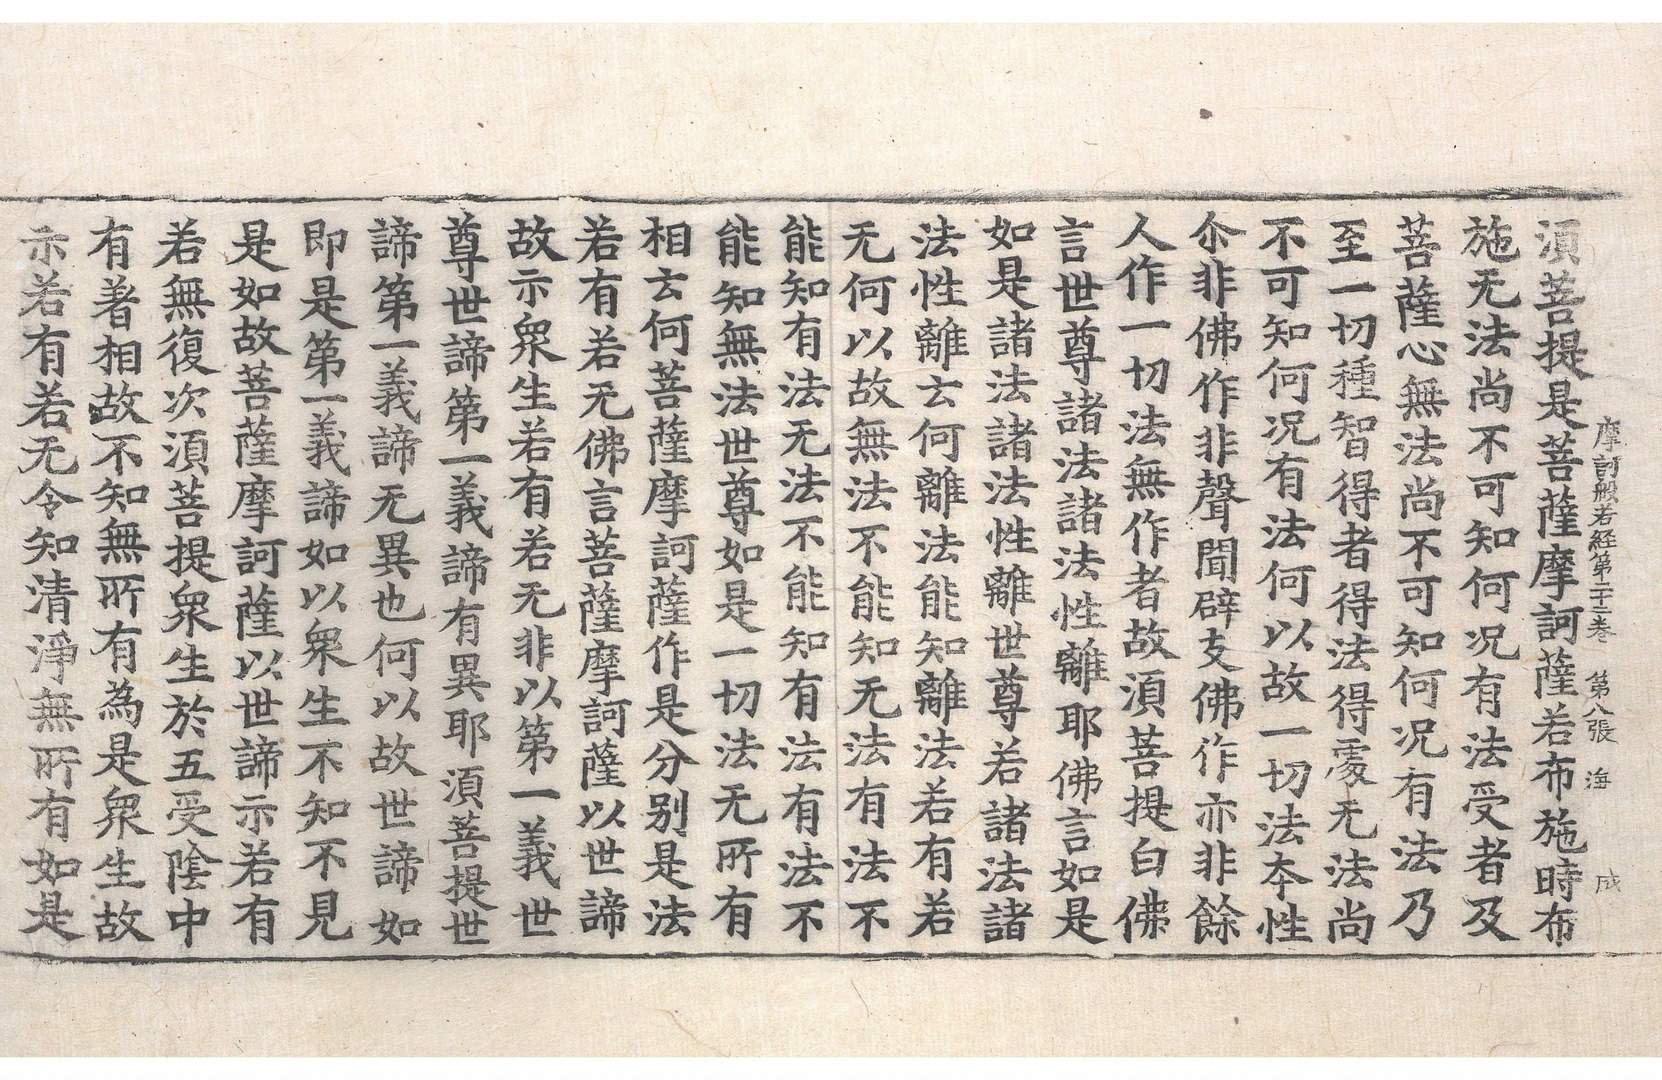 摩訶般若経第二十二巻　第八張　海　成
湏菩提是菩薩摩訶薩若布施時布
施无法尚不可知何况有法受者及
菩薩心無法尚不可知何况有法乃
至一切種智得者得法得䖏无法尚
不可知何况有法何以故一切法本性
尒非佛作非聲聞辟支佛作亦非餘
人作一切法無作者故湏菩提白佛
言世尊諸法諸法性離耶佛言如是
如是諸法諸法性離世尊若諸法諸
法性離云何離法能知離法若有若
无何以故無法不能知无法有法不
能知有法无法不能知有法有法不
能知無法世尊如是一切法无所有
相云何菩薩摩訶薩作是分别是法
若有若无佛言菩薩摩訶薩以世諦
故示衆生若有若无非以第一義世
尊世諦第一義諦有異耶湏菩提世
諦第一義諦无異也何以故世諦如
即是第一義諦如以衆生不知不見
是如故菩薩摩訶薩以世諦示若有
若無復次湏菩提衆生於五受陰中
有著相故不知無所有為是衆生故
示若有若无令知清淨無所有如是